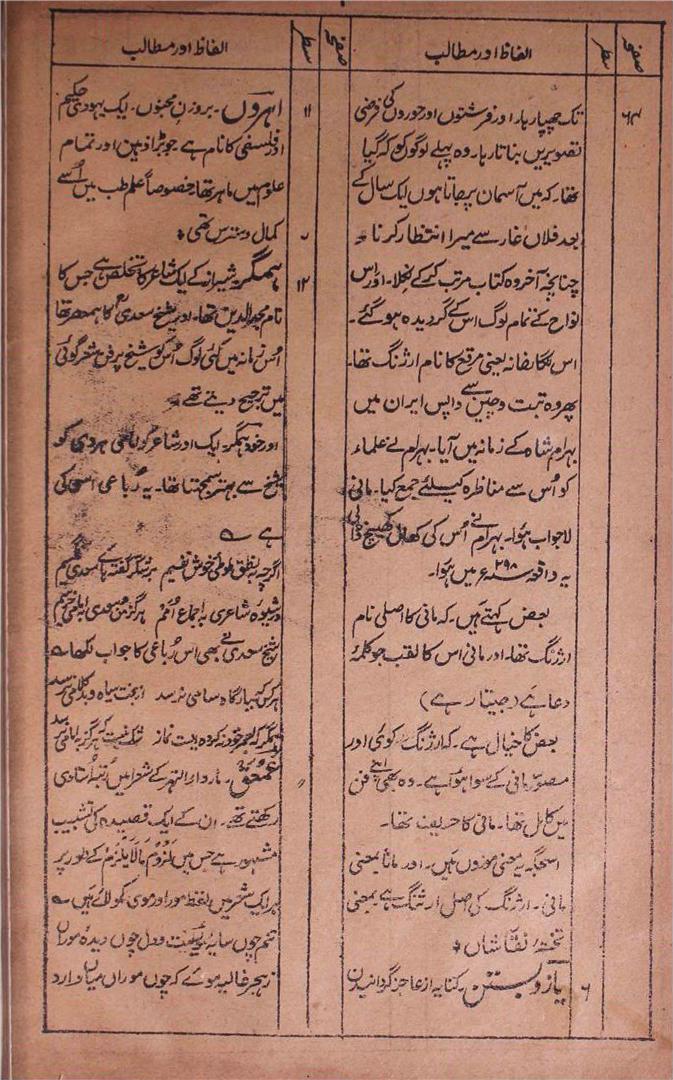 صفحہ
سطر
الفاظ اور مطالب
۶۴
تک چھپا رہا۔ اور فرشتوں اور حوروں کی فرضی
تصویریں بناتا رہا۔ وہ پہلے لوگوں کو کہہ گیا
تھا۔ کہ میں آسمان پر جاتا ہوں ایک سال کے
بعد فلاں غار سے میرا انتظار کرنا۔
چنانچہ آخر وہ کتاب مرتب کر کے نکلا۔ اور اس
نواح کے تمام لوگ اس کے گرویدہ ہو گئے۔
اس نگارخانہ یعنی مرقع کا نام ارژنگ تھا۔
پھر وہ تبت و چین سے واپس ایران میں
بہرام شاہ کے زمانہ میں آیا۔ بہرام نے علماء
کو اُس سے مناظرہ کیلئے جمع کیا۔ مانی
لاجواب ہوا۔ بہرام نے اُس کی کھال کھینچ ڈالی
یہ واقعہ سنہ ۲۹۸ء میں ہوا۔
بعض کہتے ہیں۔ کہ مانی کا اصلی نام
ارژنگ تھا۔ اور مانی اس کا لقب جو کلمۂ
دعا ہے (جیتا رہے)
بعض کا خیال ہے۔ کہ ارژنگ کوئی اور
مصوّر مانی کے سوا ہوا ہے۔ وہ بھی اپنے فن
میں کامل تھا۔ مانی کا حریف تھا۔
اسجگہ یہ معنی موزوں ہیں۔ اور مانا بمعنی
مانی۔ ارژنگ کی اصل ارتنگ ہے بمعنی
تختۂ نقاشاں۔
۶
بازو بستن۔ کنایہ از عاجز گردانیدن
صفحہ
سطر
الفاظ اور مطالب
۱۱
اہروں۔ بروزن مجنوں۔ ایک یہودی حکیم
اور فلسفی کا نام ہے جو بڑا ذہین اور تمام
علوم میں ماہر تھا۔ خصوصاً علم طب میں اُسے
کمال دسترس تھی۔
۱۲
ہمگر۔ شیراز کے ایک شاعر کا تخلص ہے جس کا
نام مجد الدین تھا۔ اور یہ شیخ سعدیؒ کا ہمعصر تھا
اُس زمانہ میں کئی لوگ اُس کو شیخ پر فن شعر گوئی
میں ترجیح دیتے تھے۔
اور خود ہمگر۔ ایک اور شاعر امامی ہروی کو
شیخ سے بہتر سمجھتا تھا۔ یہ رُباعی اسی کی
ہے ؎
اگرچہ بنطق طوطی خوش نفسیم بر شکر گفتہ ہائے سعدی مگسیم
در شیوۂ شاعری بہ اجماع اُمم ہرگز من و سعدی بہ امامی نرسیم
شیخ سعدی نے بھی اس رُباعی کا جواب لکھا ؎
ہر کس کہ ببارگاہ سامی نرسد از بخت سیاہ و بد کلامی نرسد
ہمگر کہ بعمر خود نہ کردہ است نماز شک نیست کہ ہرگز بہ امامی نرسد
عمعق۔ ماوراء النہر کے شعرا میں رُتبۂ اُستادی
رکھتے تھے۔ ان کے ایک قصیدہ کی تشبیب
مشہور ہے جس میں لزوم مالا یلزم کے طور پر
ہر ایک شعر میں لفظ مور اور موی کو لائے ہیں ؎
تنم چوں سایۂ مویست و دل چوں دیدۂ موراں
ز ہجر غالیہ موئے کہ چوں موراں میاں دارد